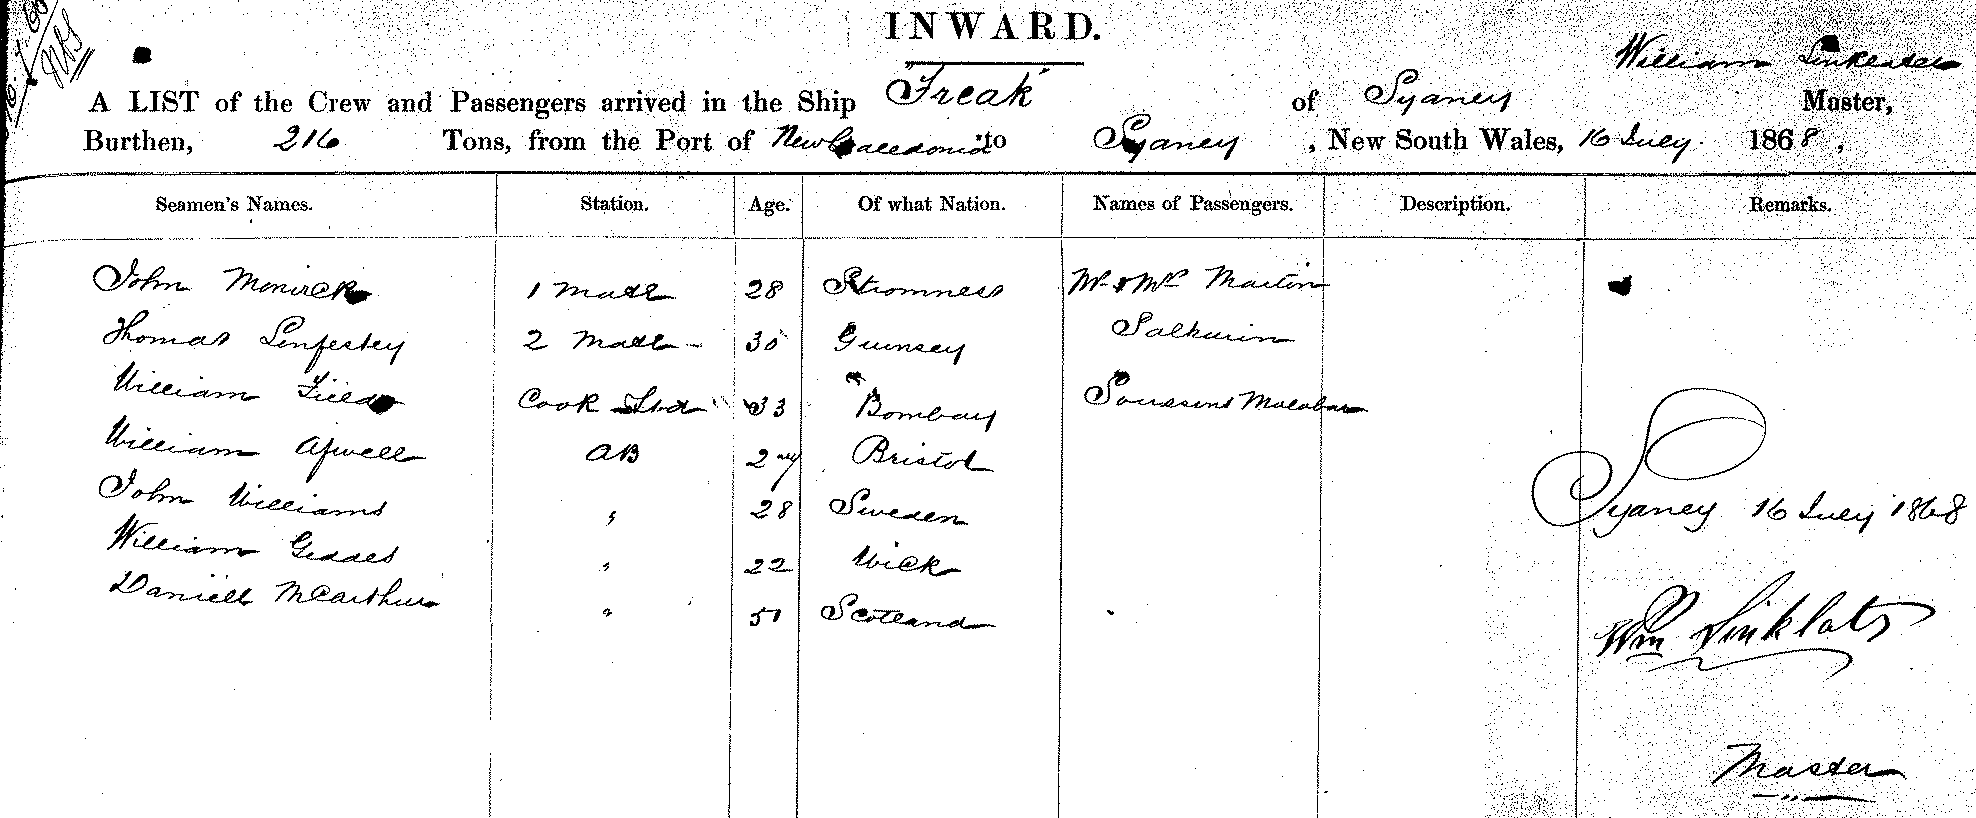 INWARD.
William Linklater
A LIST of the Crew and Passengers arrived in the Ship "Freak" of Sydney Master,
Burthen, 216 Tons, from the Port of New Caledonia to Sydney, New South Wales, 16 July 1868,
Seamen's Names. Station. Age. Of what Nation. Names of Passengers. Description. Remarks.
John 1 Mate 28 Stromness Mr & Mrs Martin
Thomas Lenfestey 2 Mate 30 Guinsey
William Field Cook Std 33 Bombay Malabar
William AB 27 Bristol
John Williams " 28 Sweden
Sydney 16 July 1868
William Geddes " 22 Wick
Daniell McArthur " 51 Scotland
Wm Linklater
Master